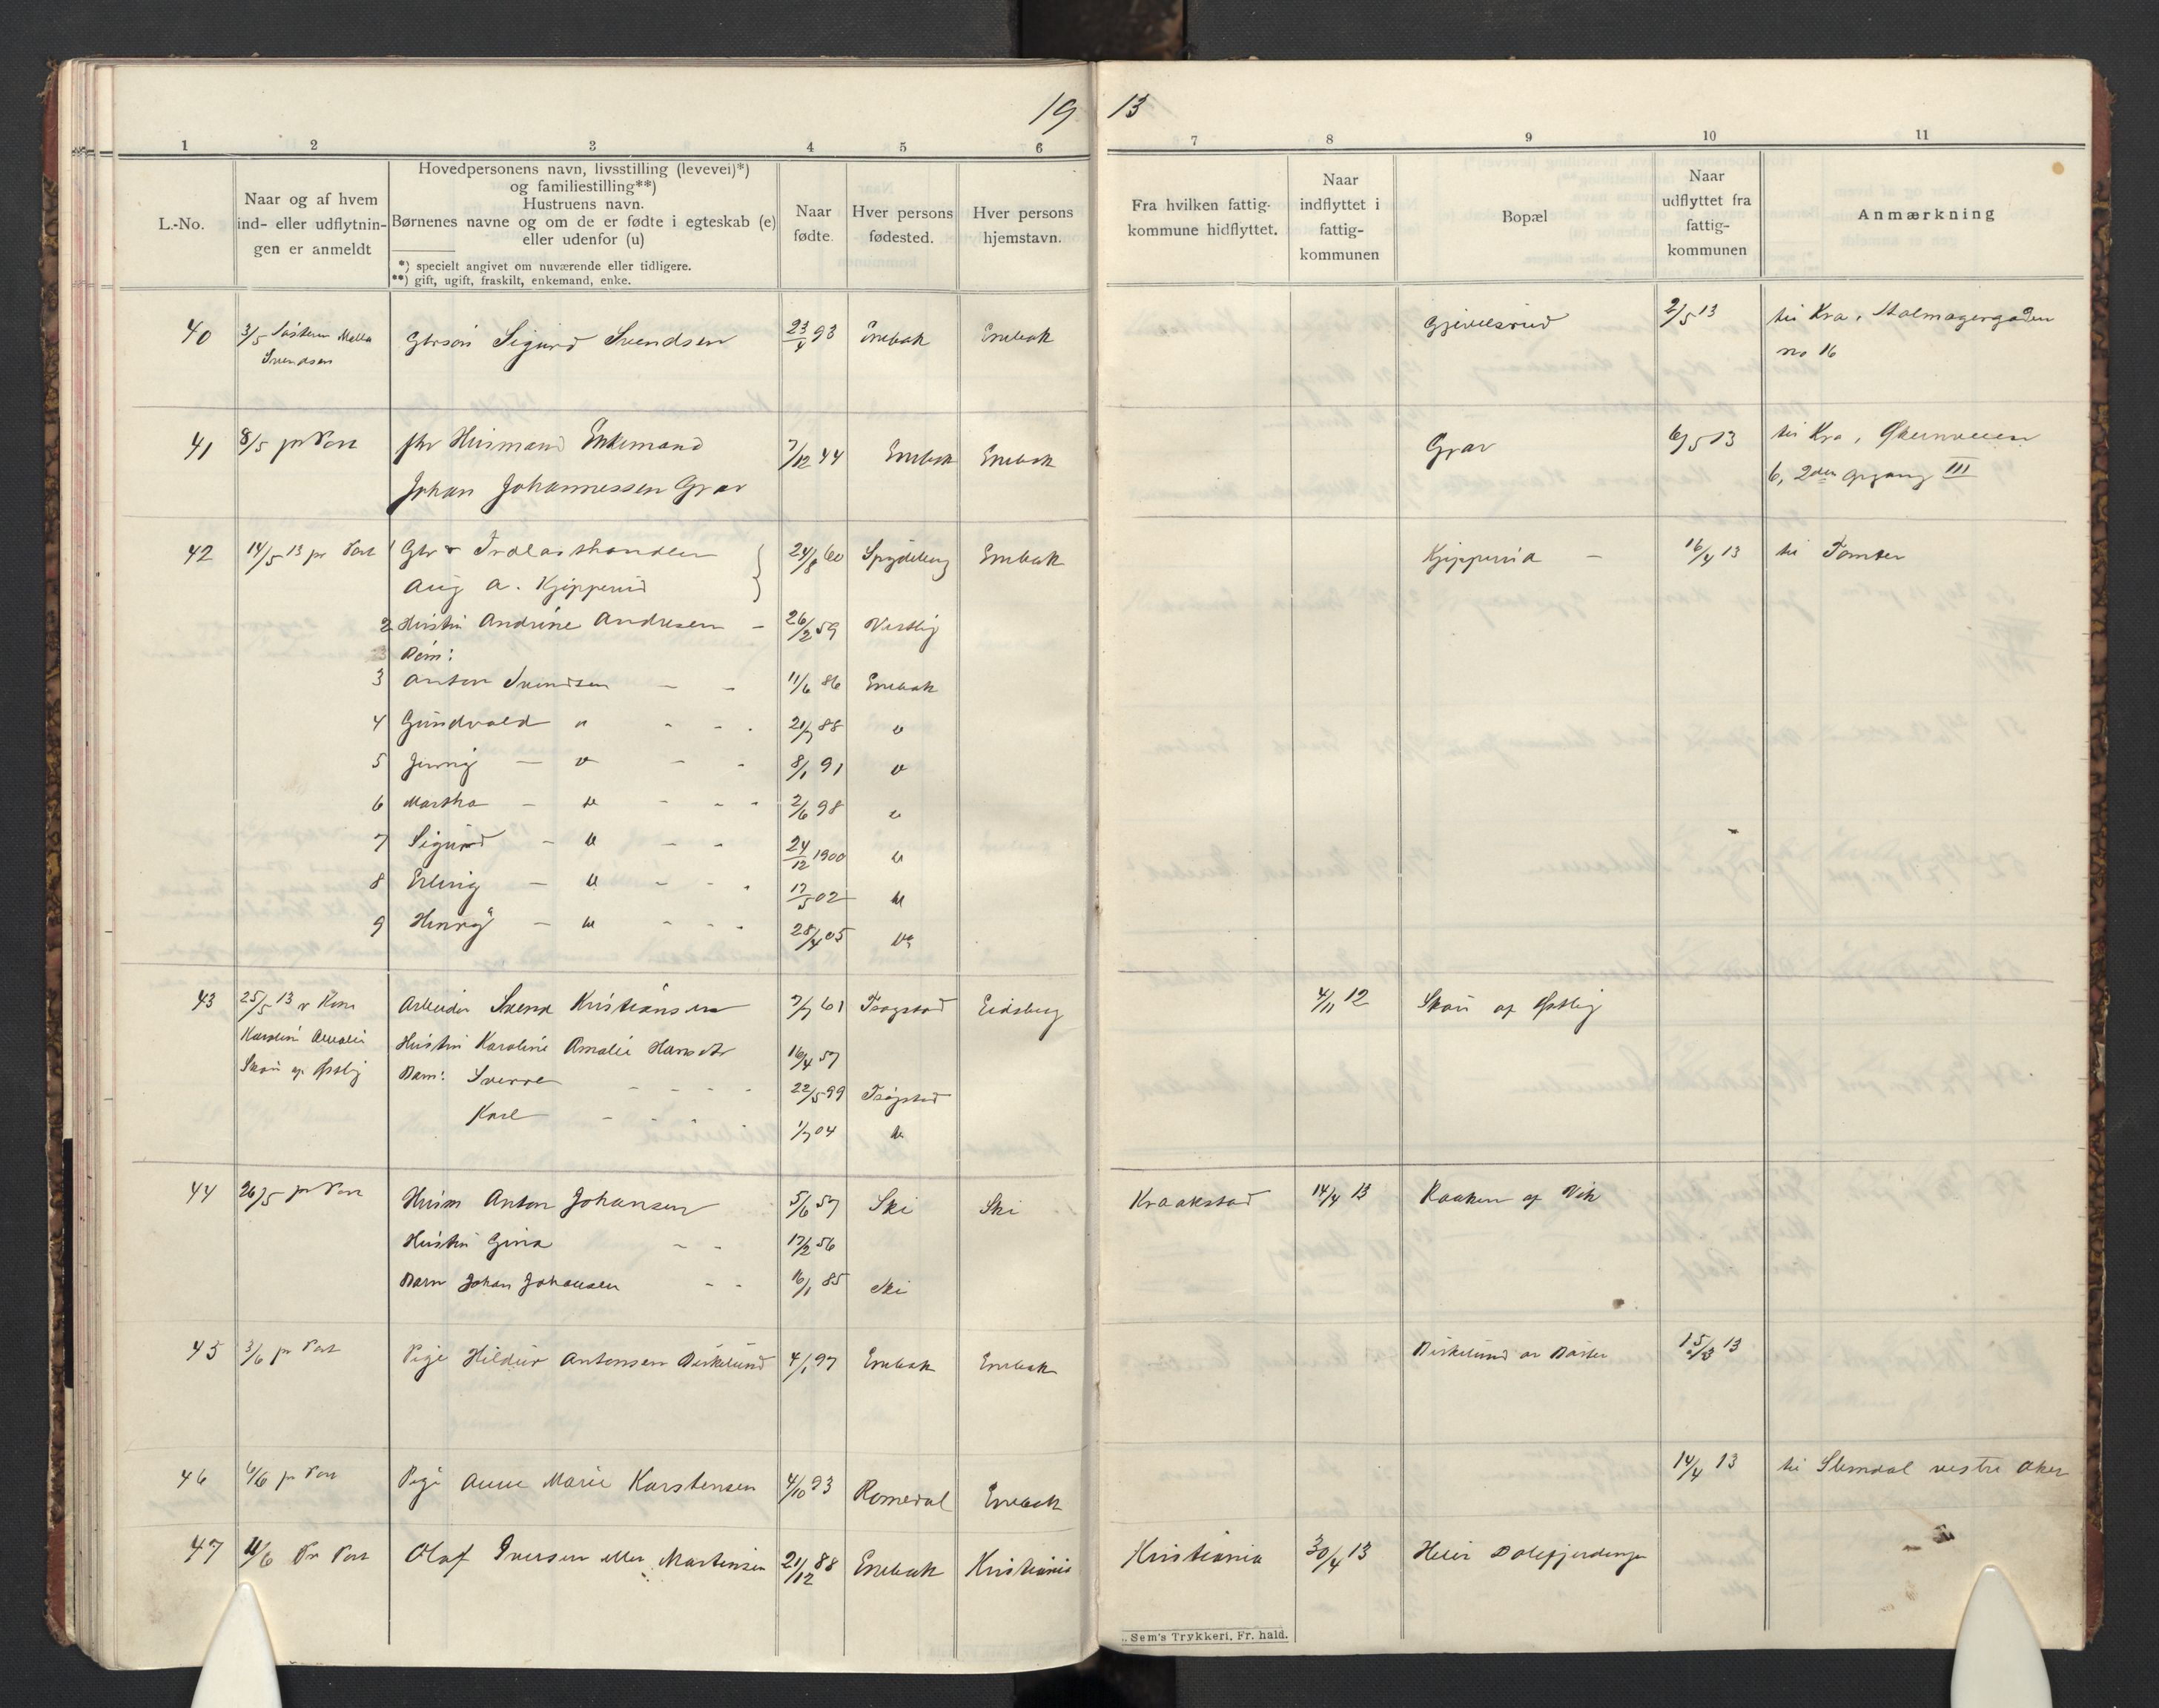 19 13
1 2 3 4 5 6 7 8 9 10 11
L.-No.
Naar og af hvem
ind- eller udflytnin-
gen er anmeldt
Hovedpersonens navn, livsstilling (levevei)*)
og familiestilling**)
Hustruens navn.
Børnenes navne og om de er fødte i egteskab (e)
eller udenfor (u)
*) specielt angivet om nuværende eller tidligere.
**) gift, ugift, fraskilt, enkemand, enke.
Naar
fødte.
Hver persons
fødested.
Hver persons
hjemstavn.
Fra hvilken fattig-
kommune hidflyttet.
Naar
indflyttet i
fattig-
kommunen
Bopæl
Naar
udflyttet fra
fattig-
kommunen
Anmærkning
40 3/5 Søsteren Svendsen Sigurd Svendsen 23/4 93 Enebak Enebak 2/5 13 til Kra, Stolmagergaden
no 16
41 8/5 pr Post fhv Husmand Enkemand 7/12 44 Enebak Enebak Grav 6/5 13 til Kra, Økernveien
Johan Johannessen Grav 6, 2den opgang III
42 14/5 13 pr Post 1 Gbr & Trælasthandler 24/8 60 Spydeberg Enebak Kjipperud 16/4 13 til Tomter
Aug A. Kjipperud
2 Hustru Andrine Andresen 26/2 59 Vestby
Børn:
3 Anton Svendsen 11/6 86 Enebak
4 Gundvald " 21/7 88 "
5 Jenny " 8/1 91 "
6 Martha " 2/6 98 "
7 Sigurd " 24/12 1900 "
8 Erling " 17/5 02 "
9 Henry " 28/4 05 "
43 25/5 13 v Kone Arbeider Svend Kristiansen 7/7 61 Trøgstad Eidsberg 4/11 12 Skøu af Østby
Karoline Amalie Hustru Karoline Amalie Hansdtr 16/4 57
Skøu af Østby Barn: Sverre 22/5 99 Trøgstad
Karl 1/7 04 "
44 26/5 pr Post Husm Anton Johansen 5/6 57 Ski Ski Kraakstad 14/4 13 Raaken af Vik
Hustru Gina 17/2 56
Barn Johan Johansen 16/1 85 Ski
45 3/6 pr Post Pige Hildur Antonsen Birkelund 4/1 97 Enebak Enebak Birkelund av Børter 15/3 13
46 6/6 pr Post Pige Anne Marie Karstensen 4/10 93 Romedal Enebak 14/4 13 til Slemdal vestre Aker
47 11/6 Pr Post Olaf Iversen eller Martinsen 21/12 88 Enebak Kristiania Kristiania 30/4 13 Dalefjerdingen
Sem's Trykkeri, Fr. hald.